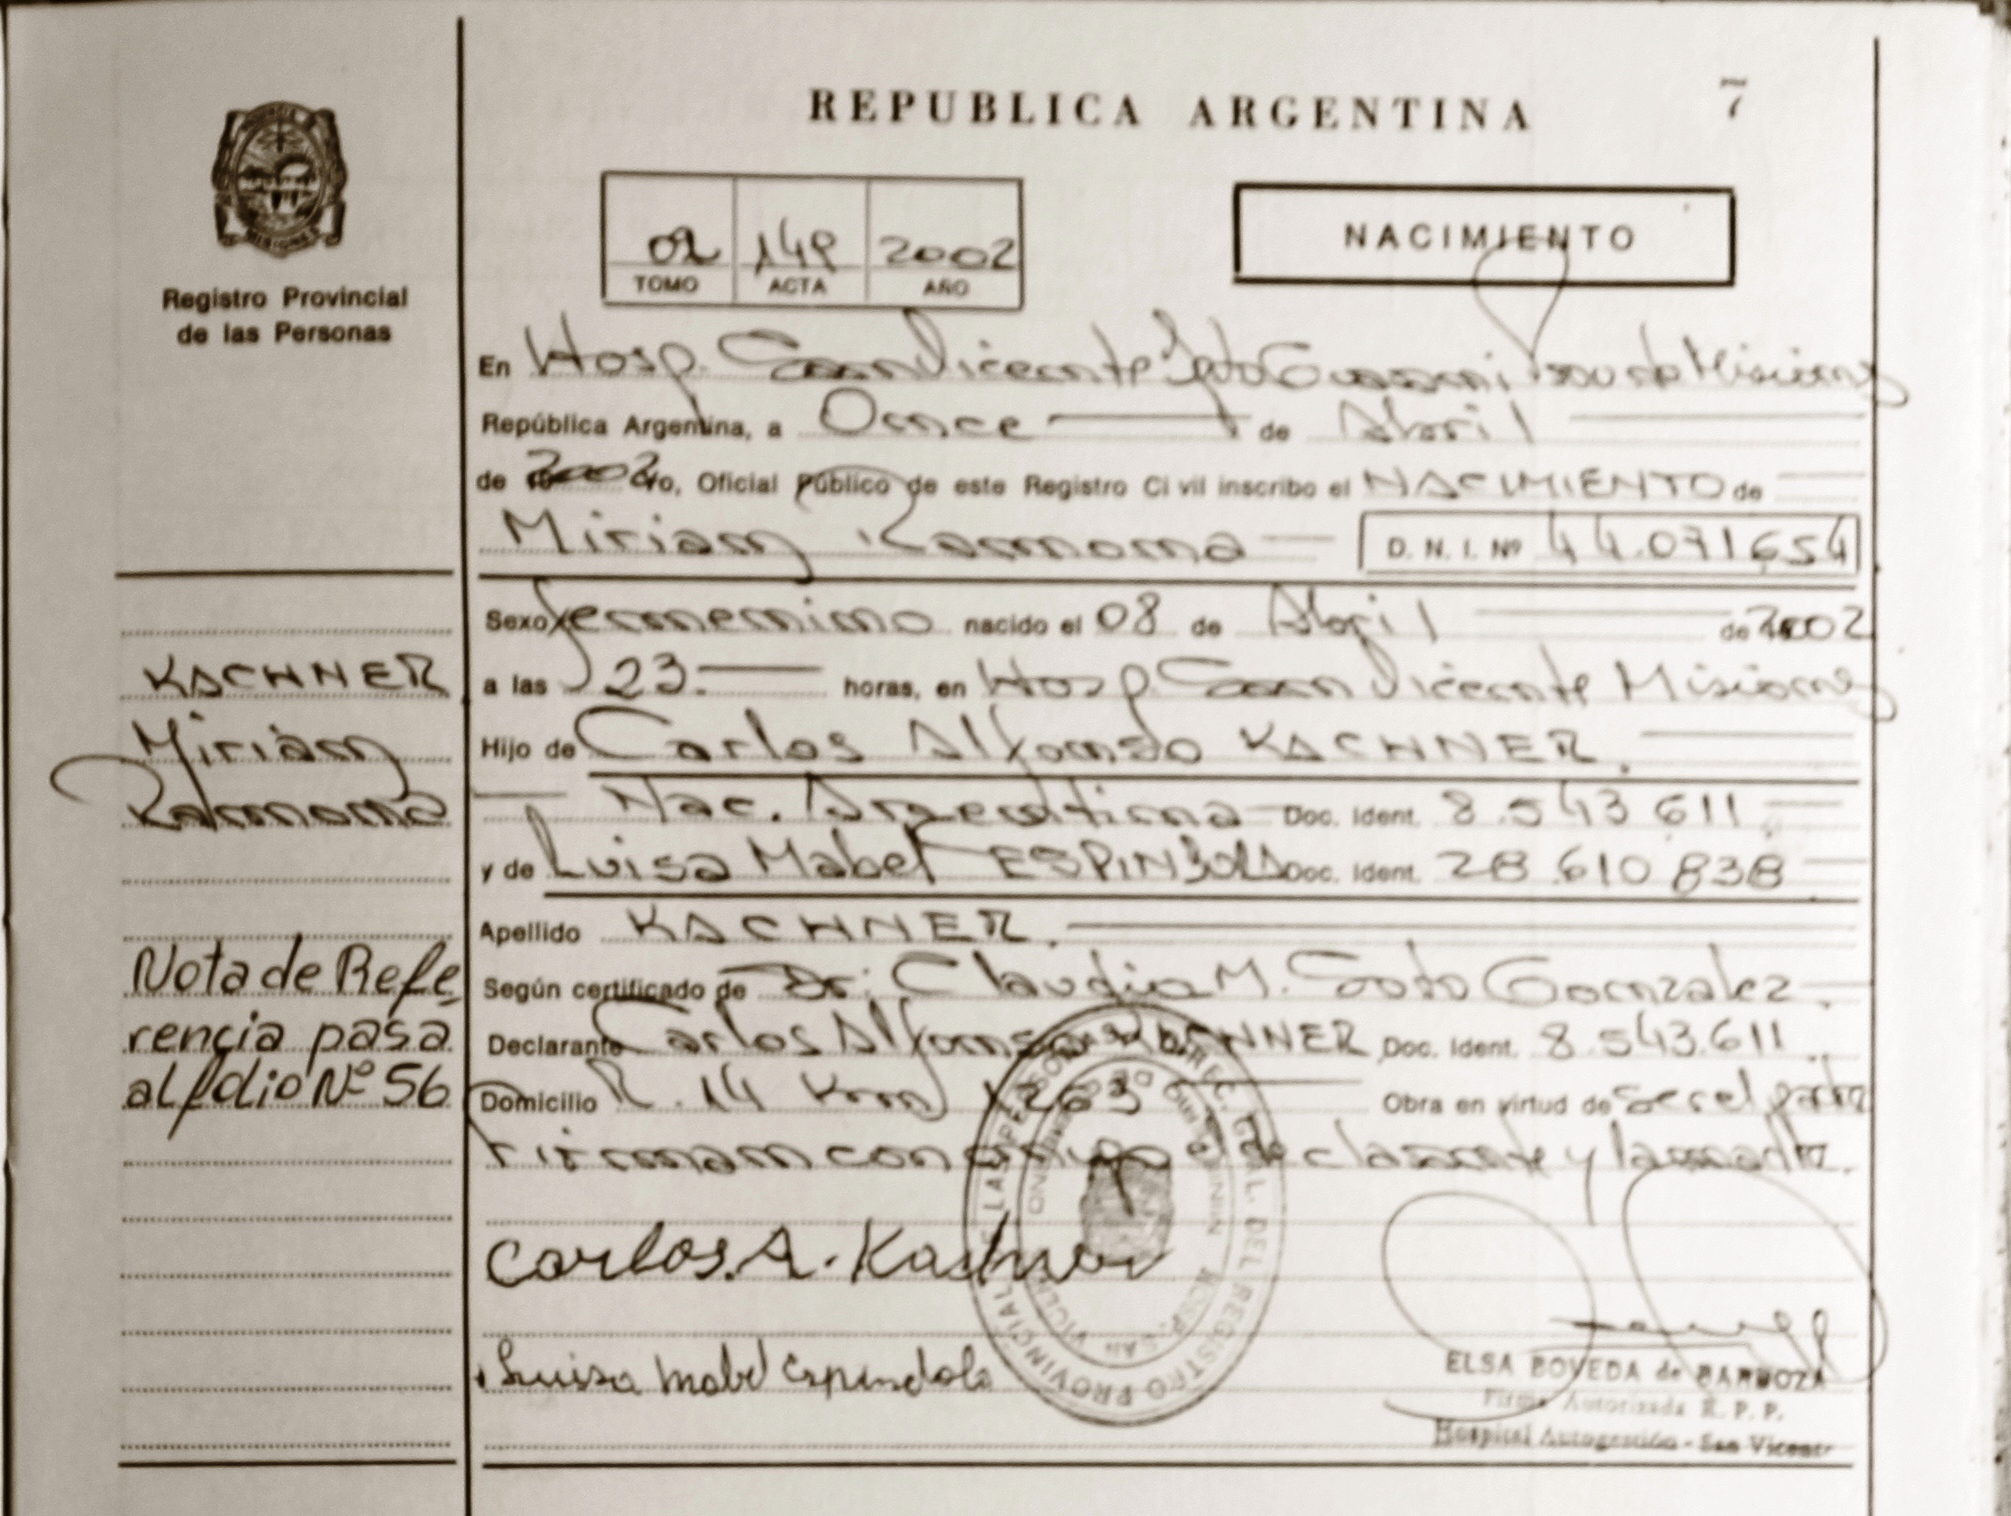 REPUBLICA ARGENTINA
7
MISIONES
Registro Provincial
de las Personas
02 149 2002
TOMO ACTA AÑO
NACIMIENTO
En Hosp. San Vicente Dpto Guarani Misiones
República Argentina, a Once de Abril
de 2002 Yo, Oficial Público de este Registro Civil inscribo el NACIMIENTO de
Miriam Ramona D. N. I. Nº 44.071654
Sexo femenino nacido el 08 de Abril de 2002
a las 23. horas, en Hosp San Vicente Misiones
Hijo de Carlos Alfonso KACHNER.
Nac. Argentina Doc. Ident. 8.543 611
y de Luisa Mabel ESPINDOLA Doc. Ident. 28.610 838
Apellido KACHNER.
Según certificado de Dr: Claudia M. Soto Gonzalez.
Declarante Carlos Alfonso KACHNER Doc. Ident. 8.543.611
Domicilio R. 14 Km 1263 Obra en virtud de ser el
Firman conmigo el declarante y la madre.
KACHNER
Miriam
Ramona
Nota de Refe
rencia pasa
al folio Nº 56
Carlos.A.Kachner
Luisa Mabel Espindola
REGISTRO PROVINCIAL DE LAS PERSONAS
HOSP. SAN VICENTE
ELSA BOVEDA de BARBOZA
Firma Autorizada R. P. P.
Hospital Autogestión - San Vicente